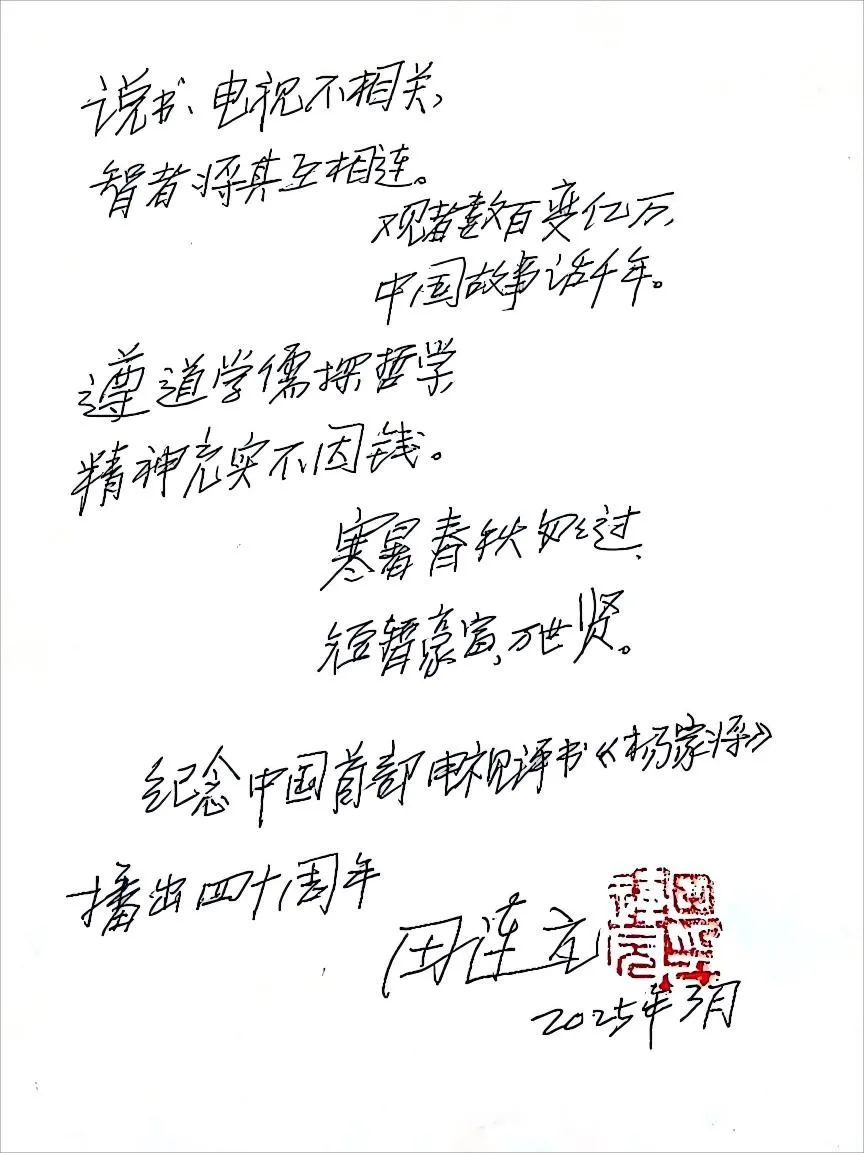 说书、电视不相关,
智者将其互相连。
观者数百变亿万,
中国故事话千年。
遵道学儒探哲学,
精神充实不因钱。
寒暑春秋匆匆过,
短暂豪富,万世贤。
纪念中国首部电视评书《杨家将》
播出四十周年
田连元
田连元印
2025年3月